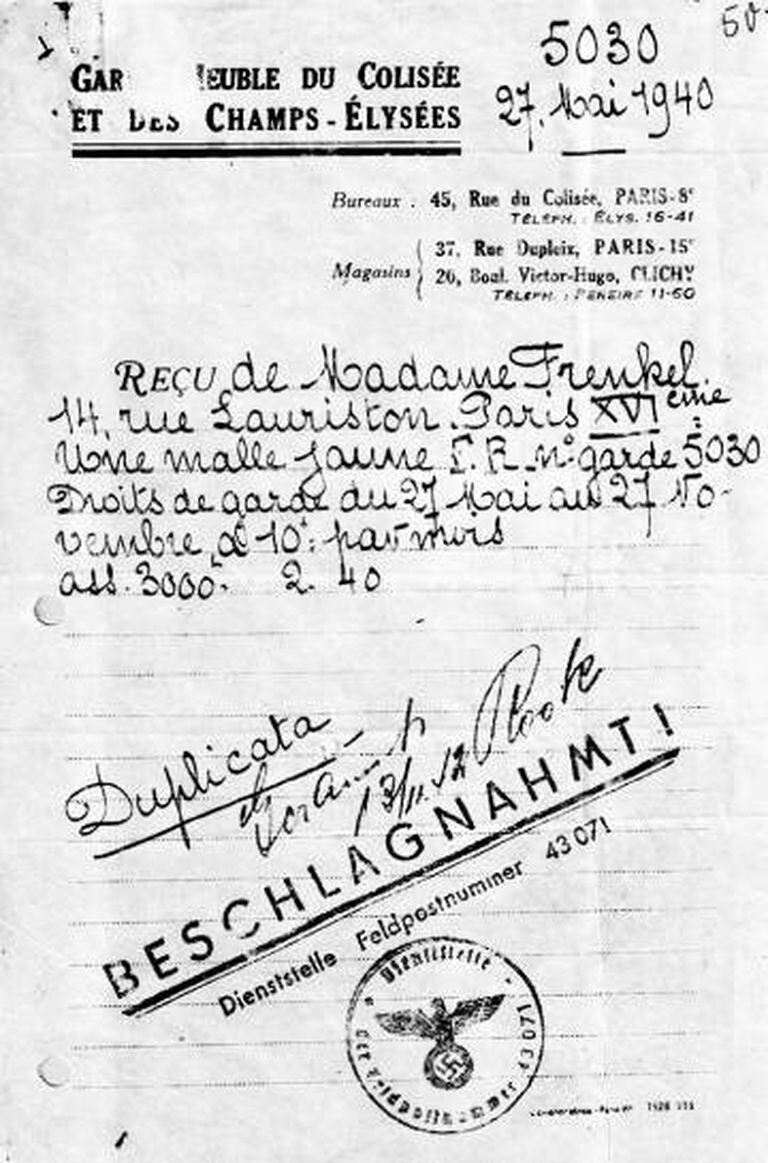 50-
5030
27. Mai 1940
GAR EUBLE DU COLISÉE
ET DES CHAMPS-ÉLYSÉES
Bureaux : 45, Rue du Colisée, PARIS-8e
TÉLÉPH. : ÉLYS. 16-41
Magasins
37, Rue Dupleix, PARIS-15e
20, Boul. Victor-Hugo, CLICHY
TÉLÉPH. : PEREIRE 11-60
REÇU de Madame Frenkel.
14, rue Lauriston. Paris XVIème
Une malle jaune F. R. n° garde 5030
Droits de garde du 27 Mai au 27 No-
vembre à 10f: par mois
ass. 3000. 2. 40
Duplicata
BESCHLAGNAHMT!
Dienststelle Feldpostnummer 43 071
Dienststelle
der Feldpostnummer 43 071